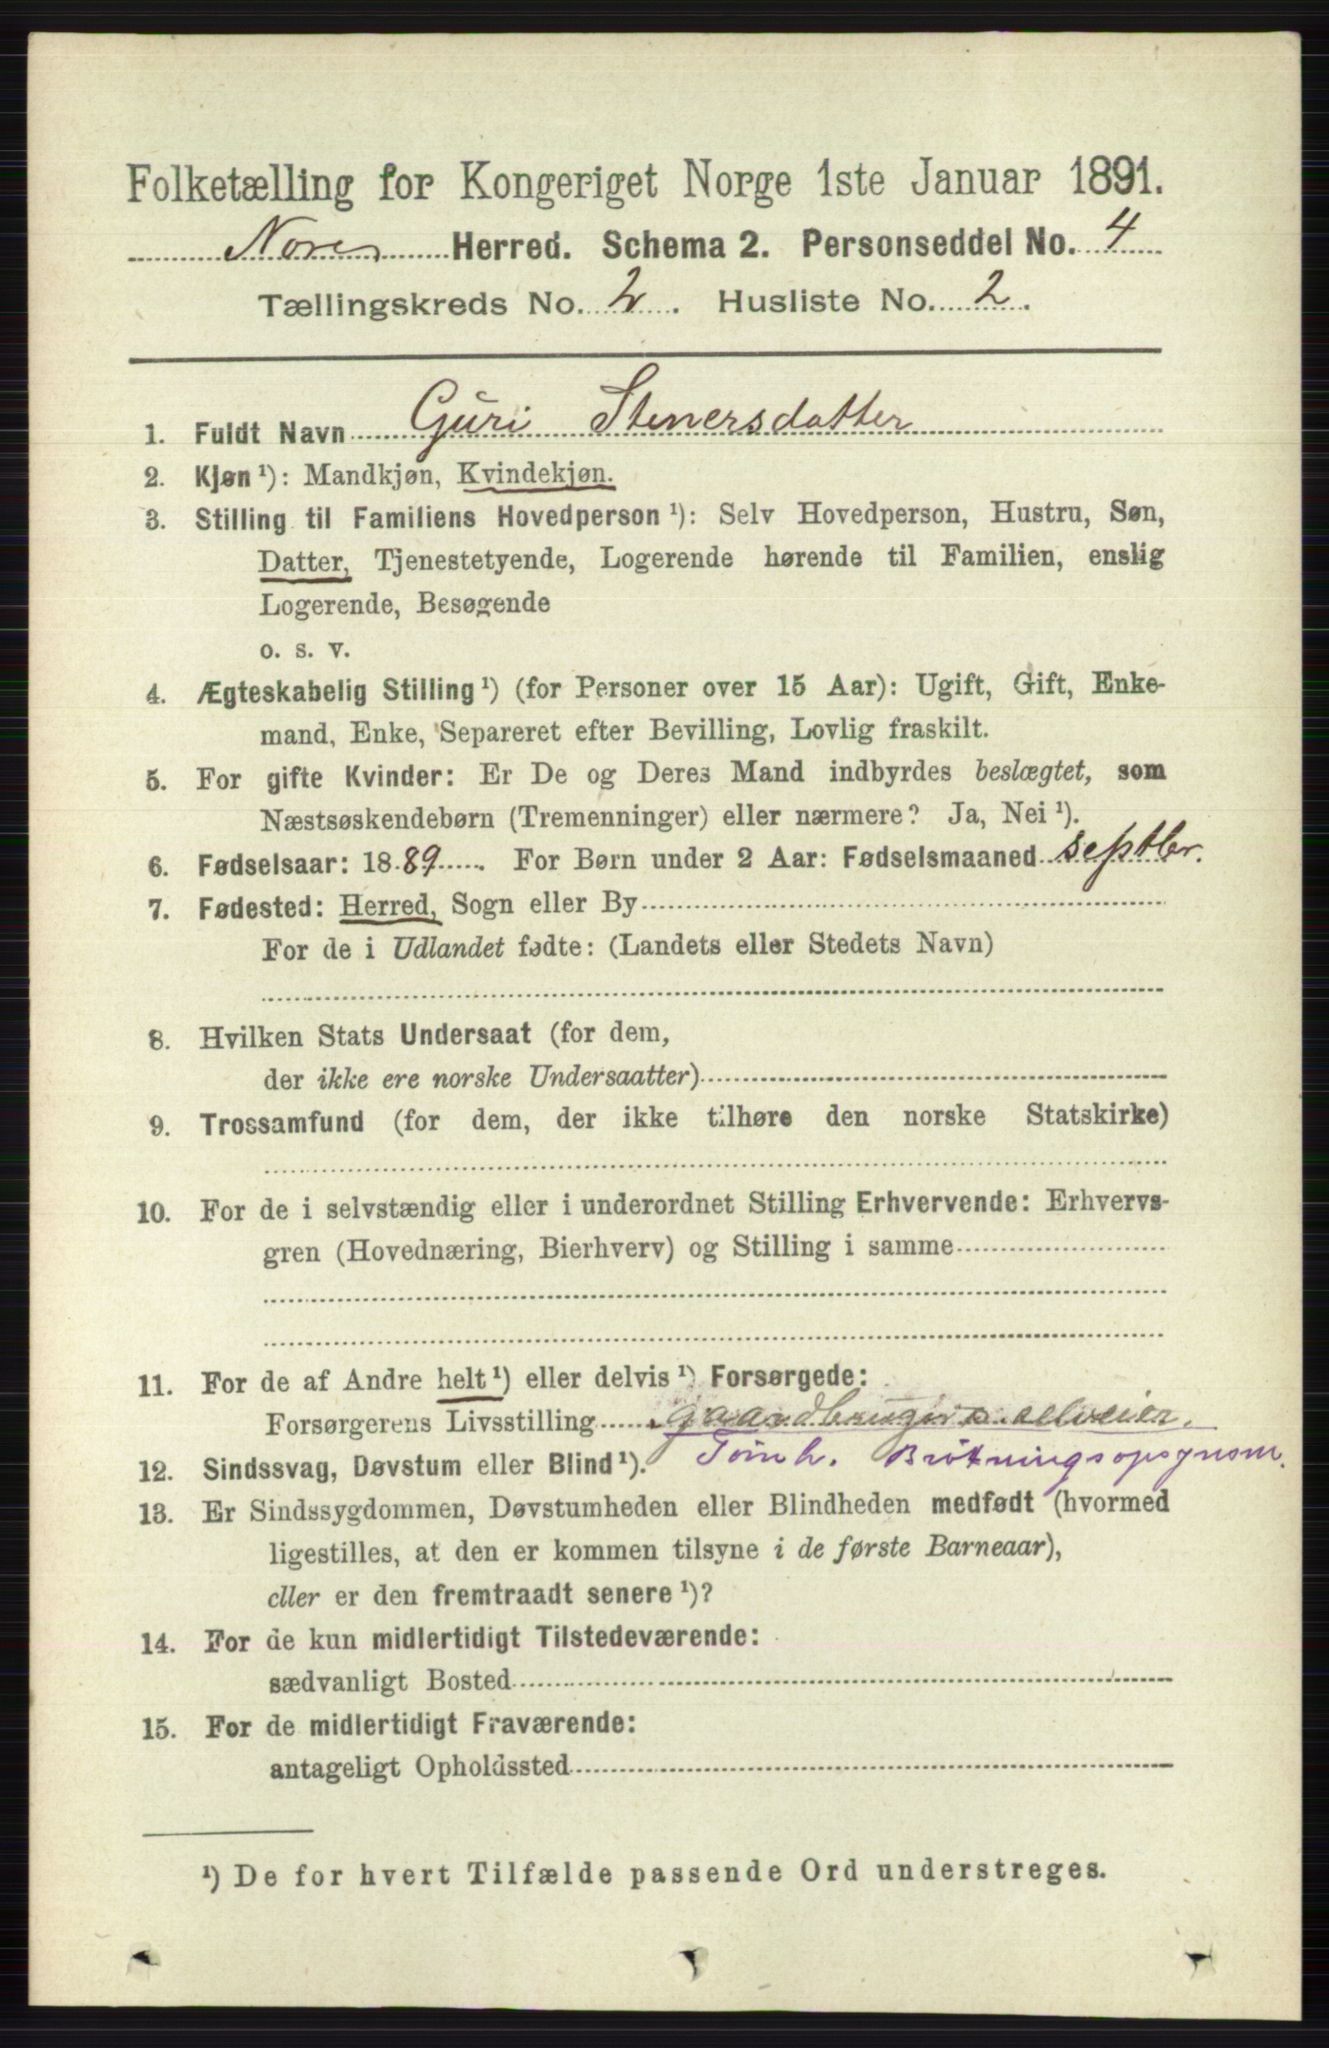 Folketælling for Kongeriget Norge 1ste Januar 1891.
Nore Herred. Schema 2. Personseddel No. 4
Tællingskreds No. 2. Husliste No. 2.
1. Fuldt Navn Guri Stenersdatter
2. Kjøn ¹): Mandkjøn, Kvindekjøn.
3. Stilling til Familiens Hovedperson ¹): Selv Hovedperson, Hustru, Søn,
Datter, Tjenestetyende, Logerende hørende til Familien, enslig
Logerende, Besøgende
o. s. v.
4. Ægteskabelig Stilling ¹) (for Personer over 15 Aar): Ugift, Gift, Enke-
mand, Enke, Separeret efter Bevilling, Lovlig fraskilt.
5. For gifte Kvinder: Er De og Deres Mand indbyrdes beslægtet, som
Næstsøskendebørn (Tremenninger) eller nærmere? Ja, Nei ¹).
6. Fødselsaar: 1889. For Børn under 2 Aar: Fødselsmaaned septbr.
7. Fødested: Herred, Sogn eller By
For de i Udlandet fødte: (Landets eller Stedets Navn)
8. Hvilken Stats Undersaat (for dem,
der ikke ere norske Undersaatter)
9. Trossamfund (for dem, der ikke tilhøre den norske Statskirke)
10. For de i selvstændig eller i underordnet Stilling Erhvervende: Erhvervs-
gren (Hovednæring, Bierhverv) og Stilling i samme
11. For de af Andre helt ¹) eller delvis ¹) Forsørgede:
Forsørgerens Livsstilling gaardbruger selveier.
12. Sindssvag, Døvstum eller Blind ¹). Tømh. Brøtningsopsynsm.
13. Er Sindssygdommen, Døvstumheden eller Blindheden medfødt (hvormed
ligestilles, at den er kommen tilsyne i de første Barneaar),
eller er den fremtraadt senere ¹)?
14. For de kun midlertidigt Tilstedeværende:
sædvanligt Bosted
15. For de midlertidigt Fraværende:
antageligt Opholdssted
¹) De for hvert Tilfælde passende Ord understreges.